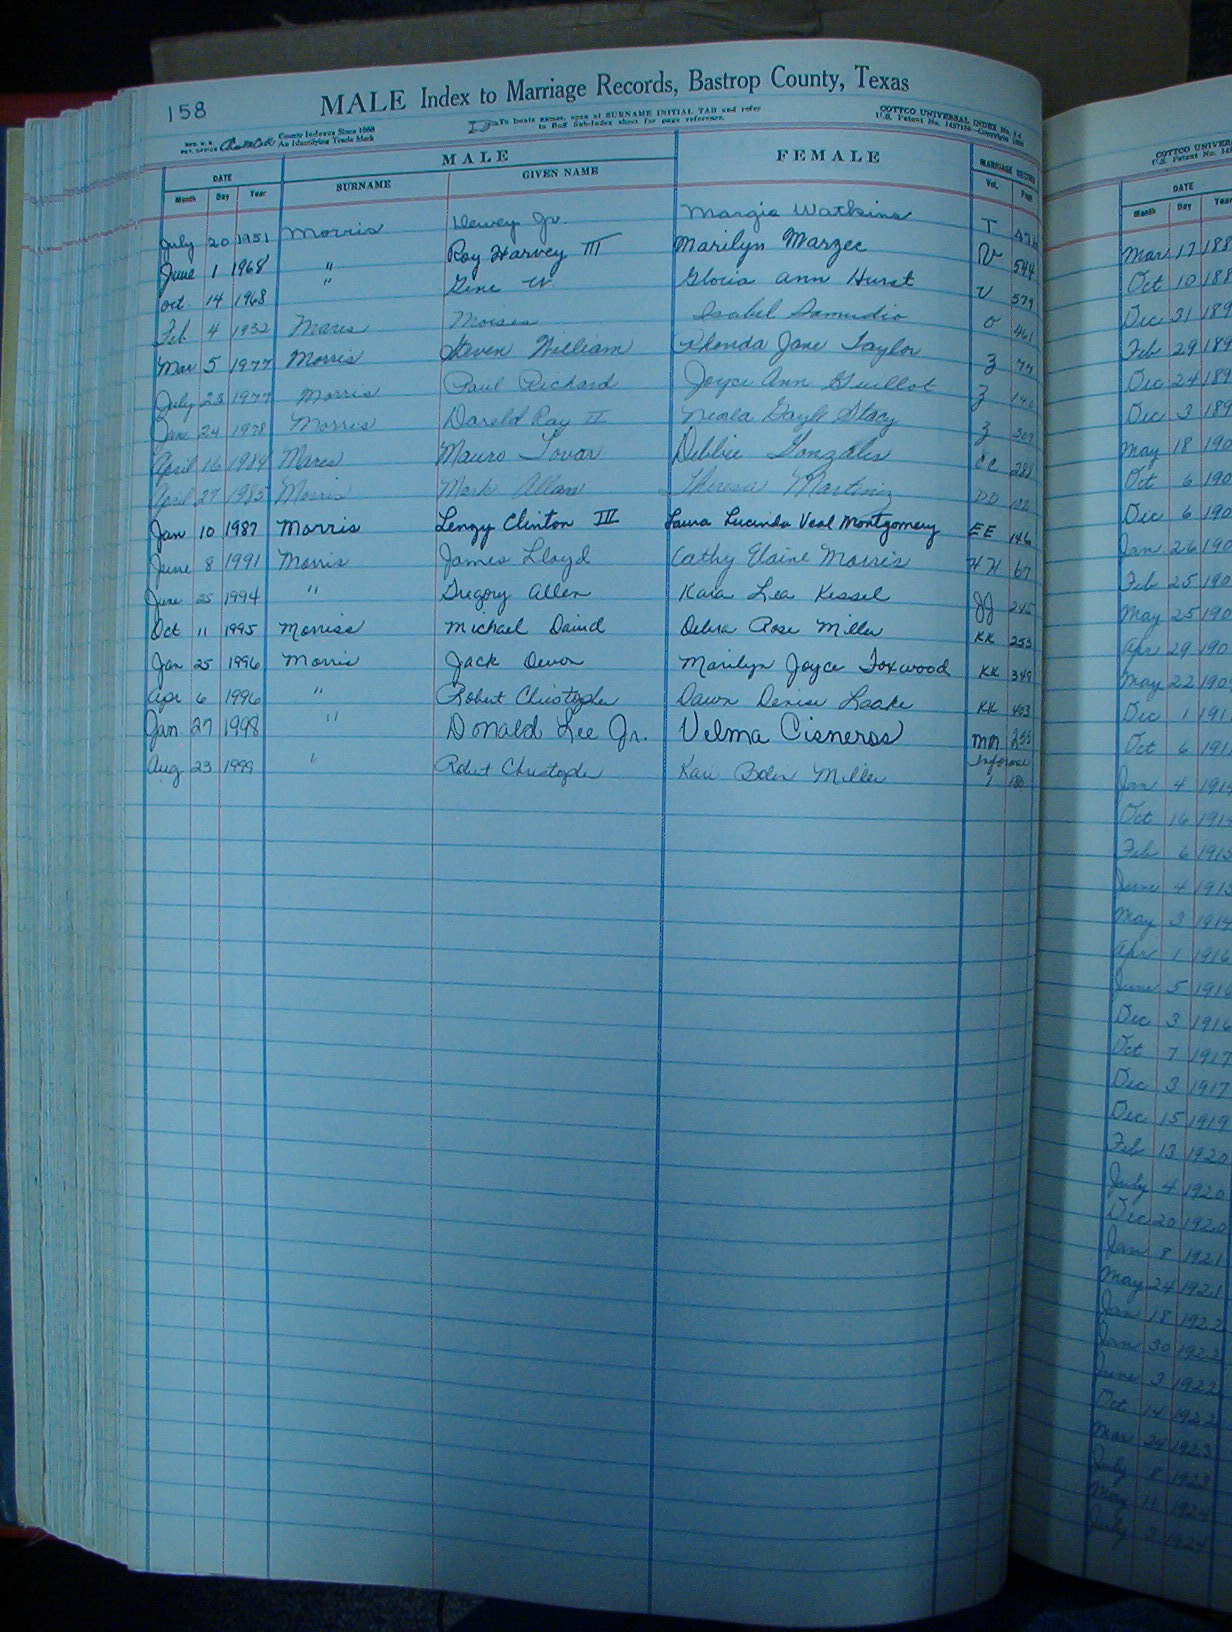 158
MALE Index to Marriage Records, Bastrop County, Texas
County Indexes Since 1888
An Identifying Trade Mark
To locate names, open at SURNAME INITIAL TAB and refer
to Buff Sub-Index sheet for page reference.
COTTCO UNIVERSAL INDEX No. 1-4
U.S. Patent No.
DATE MALE FEMALE MARRIAGE RECORD
Month Day Year SURNAME GIVEN NAME Vol. Page
July 20 1951 Morris Dewey Jr. Margie Watkins T
June 1 1968 " Roy Harvey III Marilyn Marzec V 544
Oct. 14 1968 " Gene W Gloria Ann Hurst V 579
Feb 4 1932 Mares Moises Isabel Samudio O 461
Mar 5 1977 Morris Steven William Rhonda Jane Taylor Z 77
July 23 1977 Morris Paul Richard Joyce Ann Guillot Z
Jan 24 1978 Morris Darald Ray II Neola Gayle Stacy Z 309
April 16 1984 Mares Mauro Tovar Debbie Gonzales CC 288
April 27 1985 Morris Mark Allan Theresa Martinez DD
Jan 10 1987 Morris Lenzy Clinton III Laura Lucinda Veal Montgomery EE 146
June 8 1991 Morris James Lloyd Cathy Elaine Morris HH 67
June 25 1994 " Gregory Allen Kara Lea Kessel JJ 245
Oct 11 1995 Morriss Michael David Debra Rose Miller KK 253
Jan 25 1996 Morris Jack Devon Marilyn Joyce Foxwood KK 349
Apr 6 1996 " Robert Christopher Dawn Denise Laake KK 403
Jan 27 1998 " Donald Lee Jr. Velma Cisneros MM 255
Aug 23 1999 " Robert Christopher Kari Boler Miller Informal 1 180
COTTCO UNIVERS
U.S. Patent No.
DATE
Month Day Year
Mar 17 188
Oct 10 188
Dec 31 189
Feb 29 189
Dec 24 189
Dec 3 189
May 18 190
Oct 6 190
Dec 6 190
Jan 26 190
Feb 25 190
May 25 190
Apr 29 190
May 22 190
Dec 1 191
Oct 6 191
Jan 4 191
Oct 16 191
Feb 6 1915
June 4 1915
May 3 191
Apr 1 1916
June 5 1916
Dec 3 1916
Oct 7 1917
Dec 3 1917
Dec 15 1919
Feb 13 1920
July 4 1920
Dec 20 1920
Jan 8 1921
May 24 1921
Jan 18 1922
Jan 30 1922
June 3 1922
Oct 14 1922
Mar 24 1923
July 8 1923
May 11 1924
July 2 1924